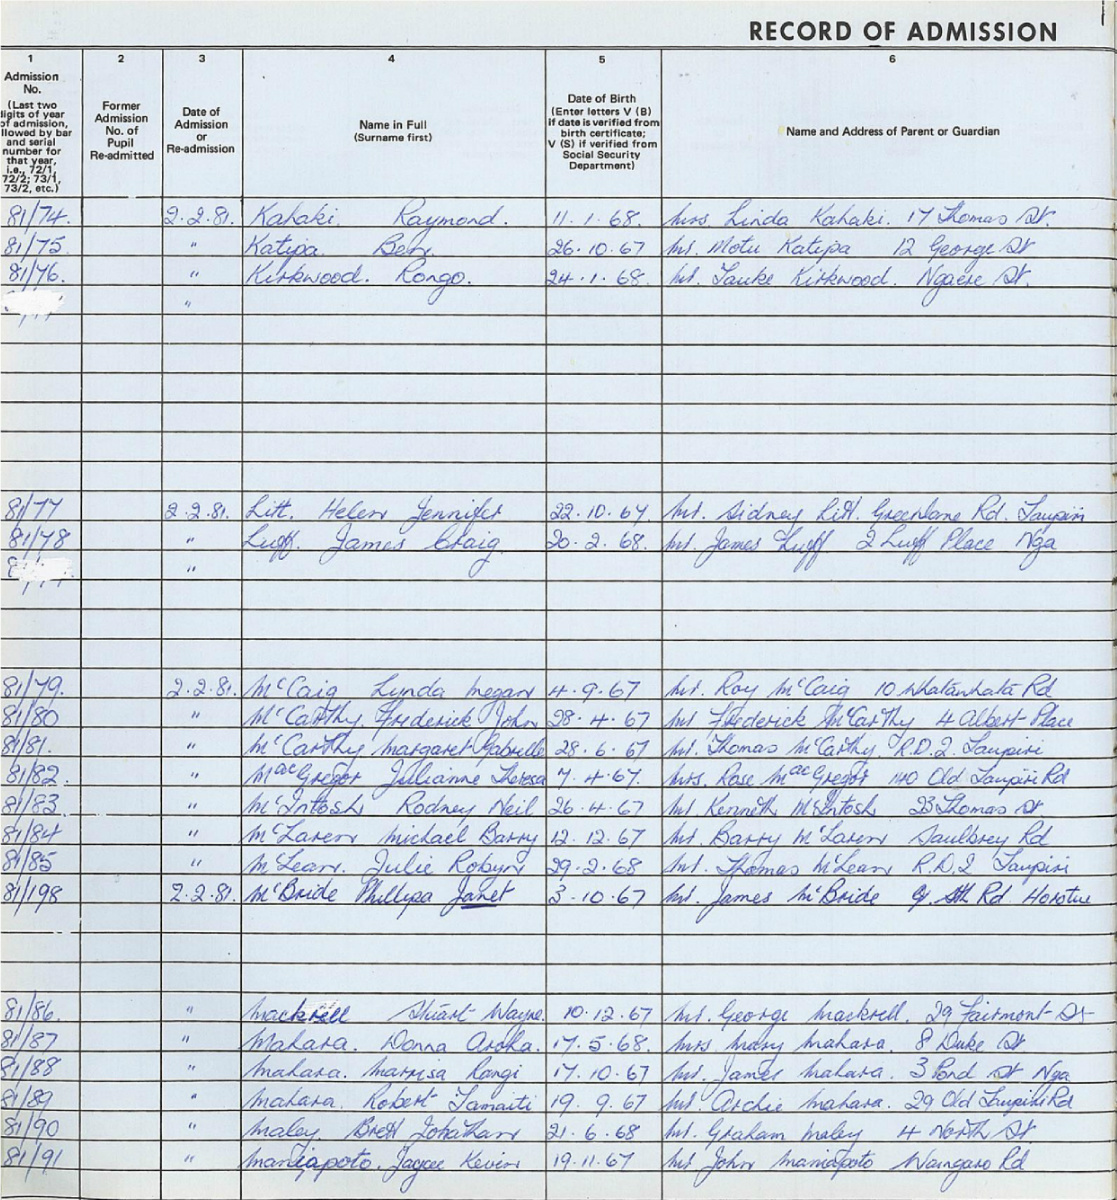 RECORD OF ADMISSION
1 2 3 4 5 6
Admission No. (Last two digits of year of admission, llowed by bar and serial number for that year, i.e., 72/1, 72/2; 73/1, 73/2, etc.)
Former Admission No. of Pupil Re-admitted
Date of Admission or Re-admission
Name in Full (Surname first)
Date of Birth (Enter letters V (B) if date is verified from birth certificate; V (S) if verified from Social Security Department)
Name and Address of Parent or Guardian
81/74. 2.2.81. Kahaki. Raymond. 11.1.68. Mrs. Linda Kahaki. 17 Thomas St.
81/75 " Katipa Ben. 26.10.67 Mr. Motu Katipa 12 George St
81/76. " Kirkwood. Rongo. 24.1.68. Mr. Tauke Kirkwood. Ngaere St.
"
81/77 2.2.81. Litt. Helen Jennifer 22.10.67. Mr. Sidney Litt. Greenlane Rd. Taupiri
81/78 " Luff. James Craig 20.2.68. Mr. James Luff 2 Luff Place Nga
"
81/79. 2.2.81. McCaig Lynda Megan 4.9.67 Mr. Roy McCaig 10 Rd
81/80 " McCarthy Frederick John 28.4.67 Mr Frederick McCarthy 4 Albert Place
81/81. " McCarthy Margaret Gabrielle 28.6.67 Mr. Thomas McCarthy R.D.2. Taupiri
81/82. " MacGregor Julianne Theresa 7.4.67. Mrs. Rose MacGregor 140 Old Taupiri Rd
81/83 " McIntosh Rodney Neil 26.4.67 Mr Kenneth McIntosh 23 Thomas St
81/84 " McLaren Michael Barry 12.12.67 Mr. Barry McLaren Saulbrey Rd
81/85 " McLean. Julie Robyn 29.2.68 Mr. Thomas McLean R.D.2 Taupiri
81/198 2.2.81. McBride Phillipa Janet 3.10.67 Mr. James McBride Rd. Horotiu
81/86. " Mackrell Stuart Wayne. 10.12.67 Mr. George Mackrell. 29 Fairmont St
81/87 " Mahara. Donna Aroha. 17.5.68. Mrs. Mary Mahara. 8 Duke St
81/88 " Mahara. Marrisa Rangi 17.10.67 Mr. James Mahara. 3 Pond St Nga
81/89 " Mahara. Robert Tamaiti 19.9.67 Mr. Archie Mahara. 29 Old Taupiri Rd
81/90 " Maley. Brett Johathan 21.6.68 Mr. Graham Maley 4 North St
81/91 " Maniapoto. Jaycee Kevin 19.11.67 Mr John Maniapoto Waingaro Rd